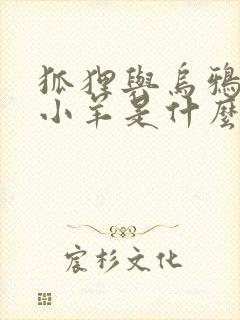 狐狸與烏鴉
小羊是什麼
宸杉文化